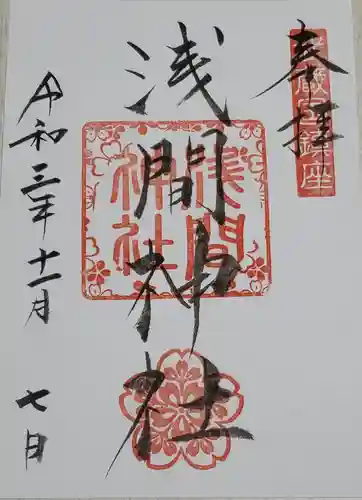 奉拝
浅間神社
浅間
神社
令和三年十一月
七日